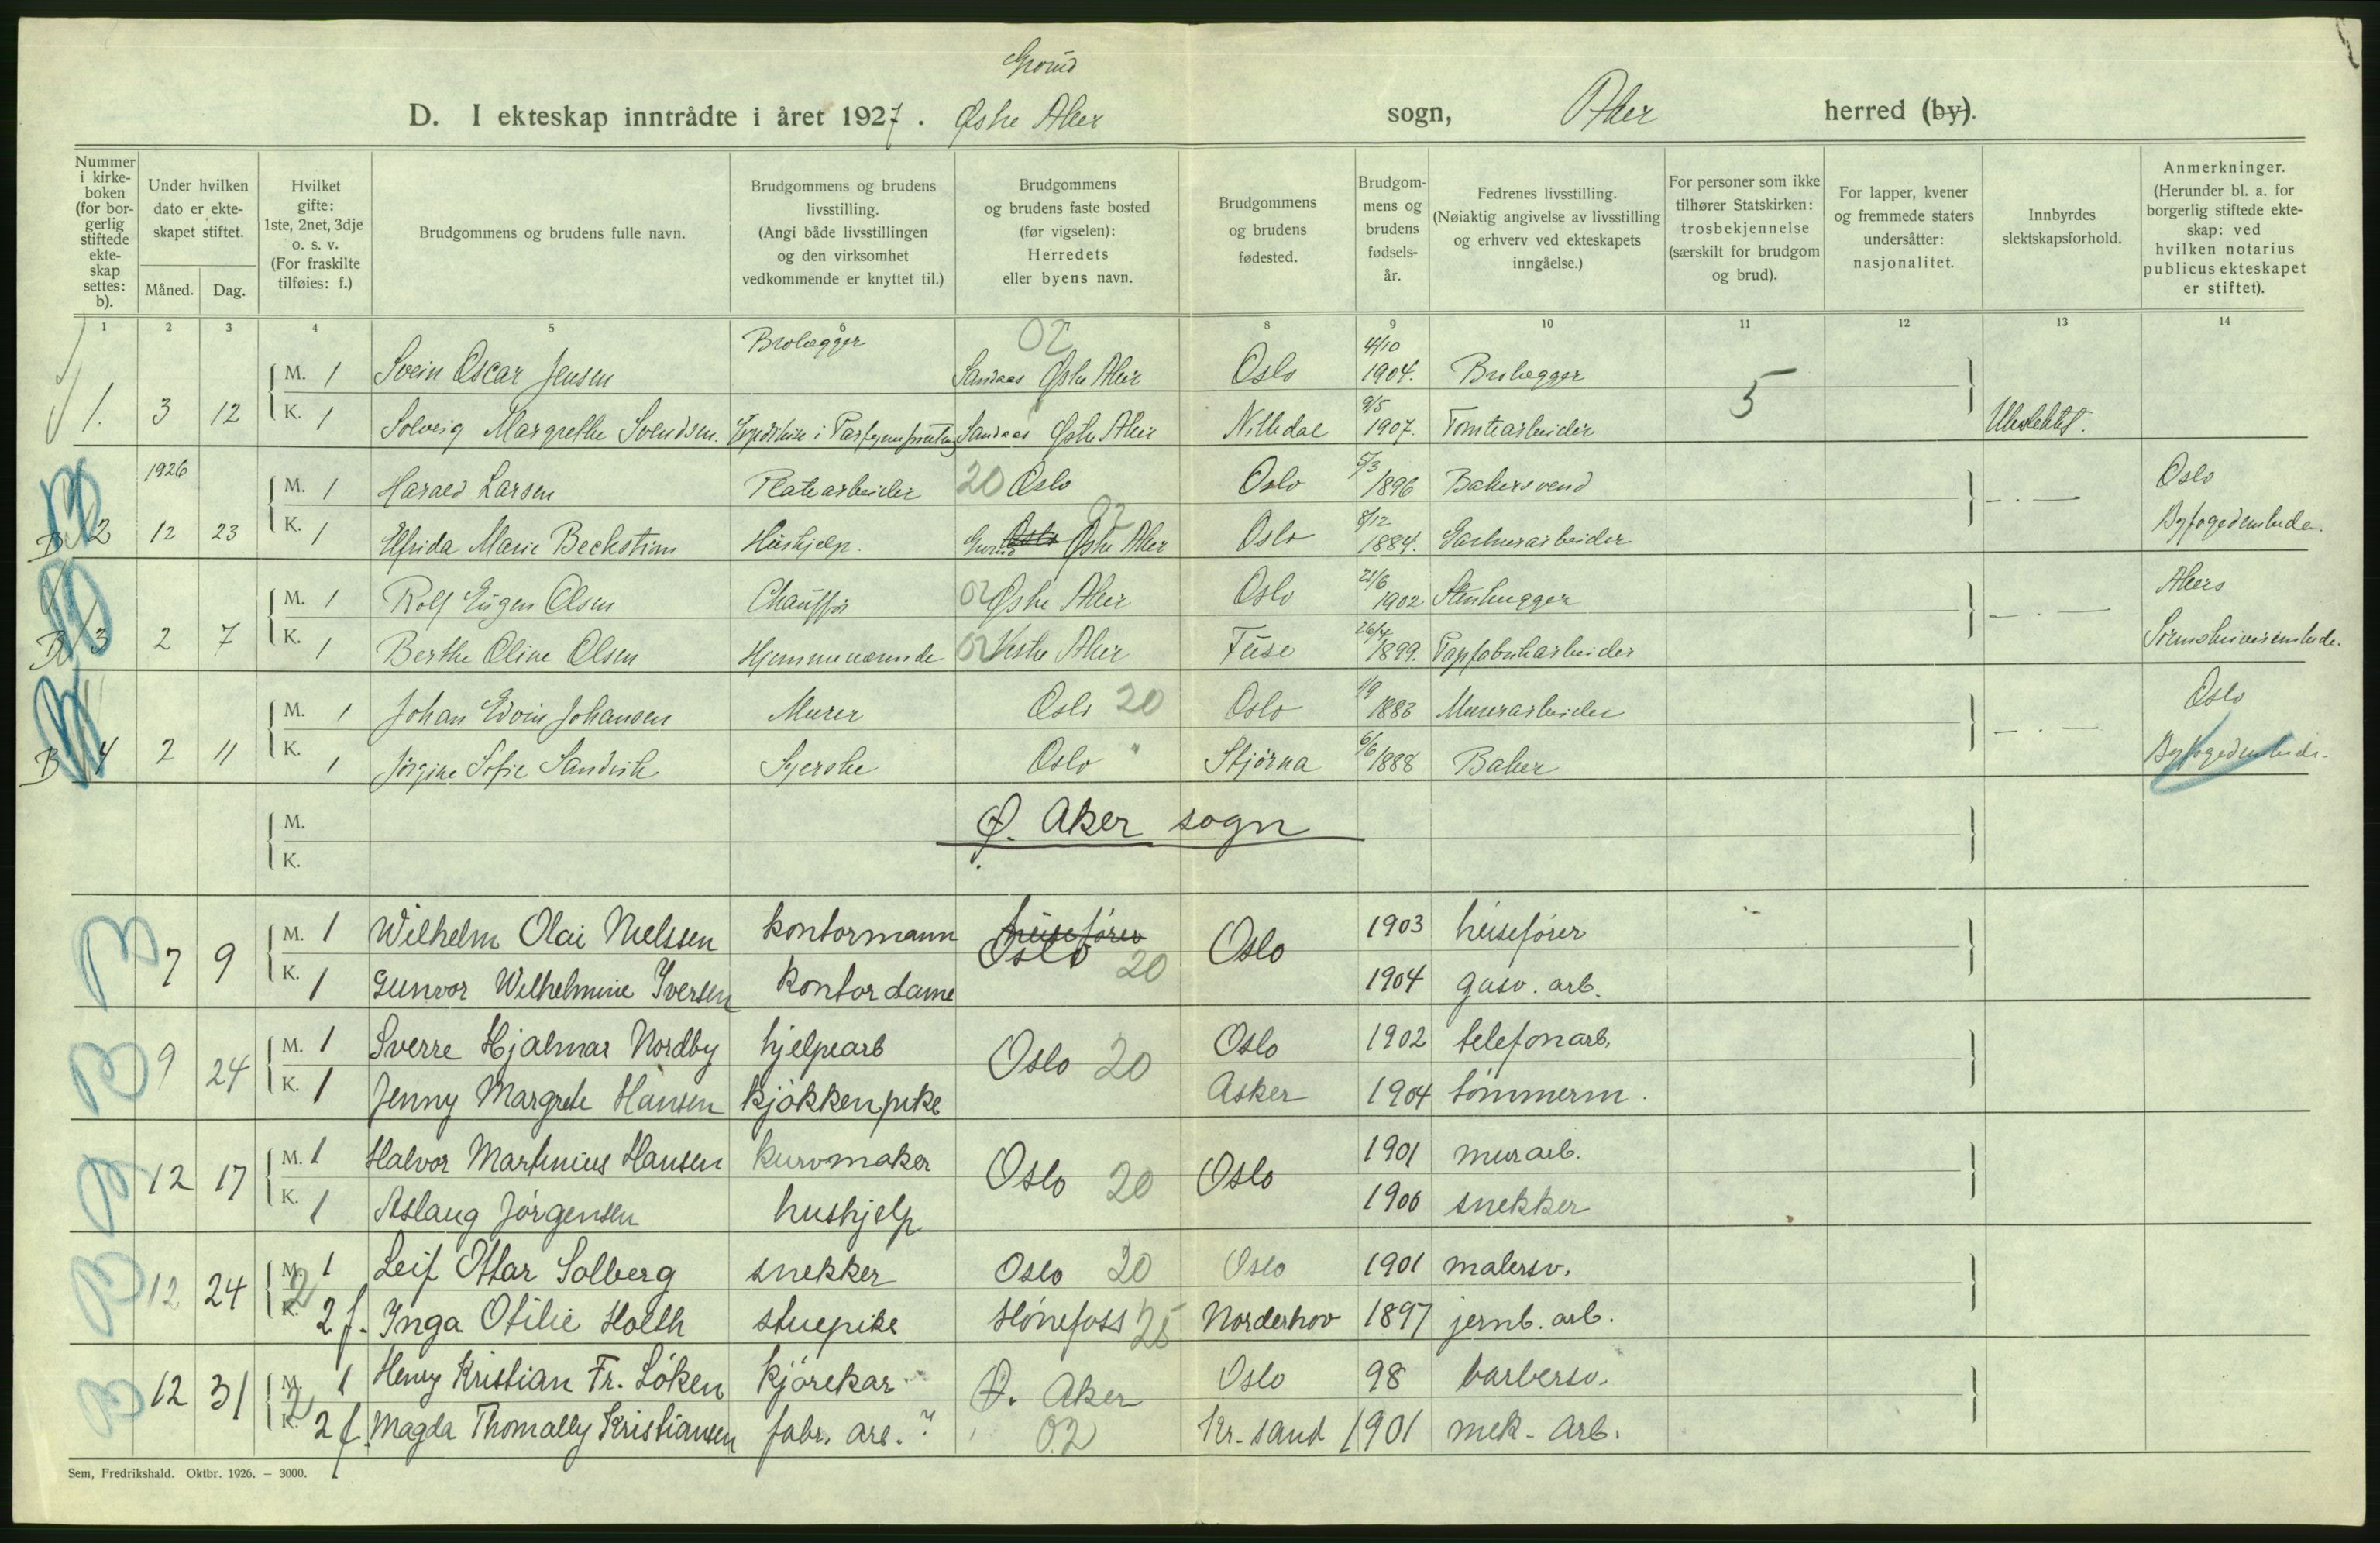 Grorud
D. I ekteskap inntrådte i året 1927. Østre Aker sogn, Aker herred (by).
Nummer i kirkeboken (for borgerlig stiftede ekteskap settes: b).
Under hvilken dato er ekteskapet stiftet.
Måned. Dag.
Hvilket gifte: 1ste, 2net, 3dje o. s. v. (For fraskilte tilføies: f.)
Brudgommens og brudens fulle navn.
Brudgommens og brudens livsstilling. (Angi både livsstillingen og den virksomhet vedkommende er knyttet til.)
Brudgommens og brudens faste bosted (før vigselen): Herredets eller byens navn.
Brudgommens og brudens fødested.
Brudgommens og brudens fødselsår.
Fedrenes livsstilling. (Nøiaktig angivelse av livsstilling og erhverv ved ekteskapets inngåelse.)
For personer som ikke tilhører Statskirken: trosbekjennelse (særskilt for brudgom og brud).
For lapper, kvener og fremmede staters undersåtter: nasjonalitet.
Innbyrdes slektskapsforhold.
Anmerkninger. (Herunder bl. a. for borgerlig stiftede ekteskap: ved hvilken notarius publicus ekteskapet er stiftet).
1 2 3 4 5 6 8 9 10 11 12 13 14
M. 1 Svein Oscar Jensen Brolægger 02 Sandaas Østre Aker Oslo 4/10 1904. Brolægger 5
1. 3 12 K. 1 Solveig Margrethe Svendsen. Sandaas Østre Aker Nittedal 9/5 1907. Tomtearbeider Ubeslektet.
1926 M. 1 Harald Larsen Platearbeider 20 Oslo Oslo 5/3 1896 Bakersvend — . — Oslo
B 2 12 23 K. 1 Elfrida Marie Beckstrøm Hushjelp. Grorud Oslo Østre Aker 02 Oslo 8/12 1884. Gartnerarbeider Byfogedembede.
M. 1 Rolf Eugen Olsen Chauffør 02 Østre Aker Oslo 21/6 1902 Stenhugger — . — Akers
B 3 2 7 K. 1 Berthe Oline Olsen Hjemmeværende 02 Vestre Aker Fuse 26/4 1899. Papfabrikarbeider Sorenskriverembede.
M. 1 Johan Edvin Johansen Murer Oslo 20 Oslo 1/9 1883 Murerarbeider — . — Oslo
B 4 2 11 K. 1 Jørgine Sofie Sandvik Syerske Oslo " Stjørna 6/6 1888 Baker Byfogedembede.
M. Ø. Aker sogn
K.
B 7 9 M. 1 Wilhelm Olai Nielssen kontormann heisefører Oslo 20 Oslo 1903 heisefører
K. 1 Gunvor Wilhelmine Iversen kontordame 1904 gasv. arb.
B 9 24 M. 1 Sverre Hjalmar Nordby hjelpearb Oslo 20 Oslo 1902 telefonarb.
K. 1 Jenny Margrete Hansen kjøkkenpike Asker 1904 tømmerm.
B 12 17 M. 1 Halvor Martinius Hansen kurvmaker Oslo 20 Oslo 1901 murarb.
K. 1 Aslaug Jørgensen hushjelp 1906 snekker
B 12 24 M. 1 Leif Ottar Solberg snekker Oslo 20 Oslo 1901 malersv.
2 K. 2 f. Inga Otilie Holth stuepike Hönefoss 25 Norderhov 1897 jernb. arb.
B 12 31 M. 1 Henry Kristian Fr. Löken kjörekar Ø. Aker Oslo 98 barbersv.
2 K. 2 f. Magda Thomally Kristiansen fabr. arb. " 02 Kr.sand 1901 mek. arb.
Sem, Fredrikshald. Oktbr. 1926. – 3000.